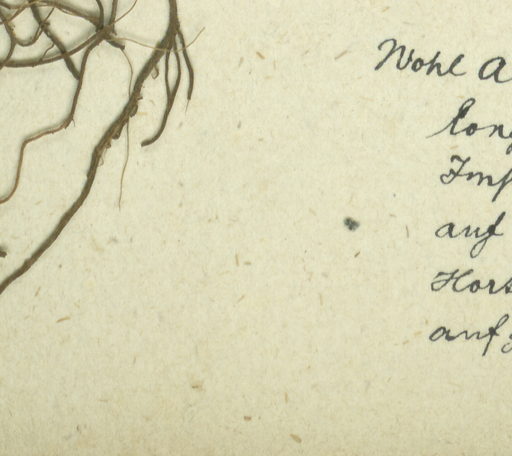 Wohl A
long
Imp
auf
Hors
auf